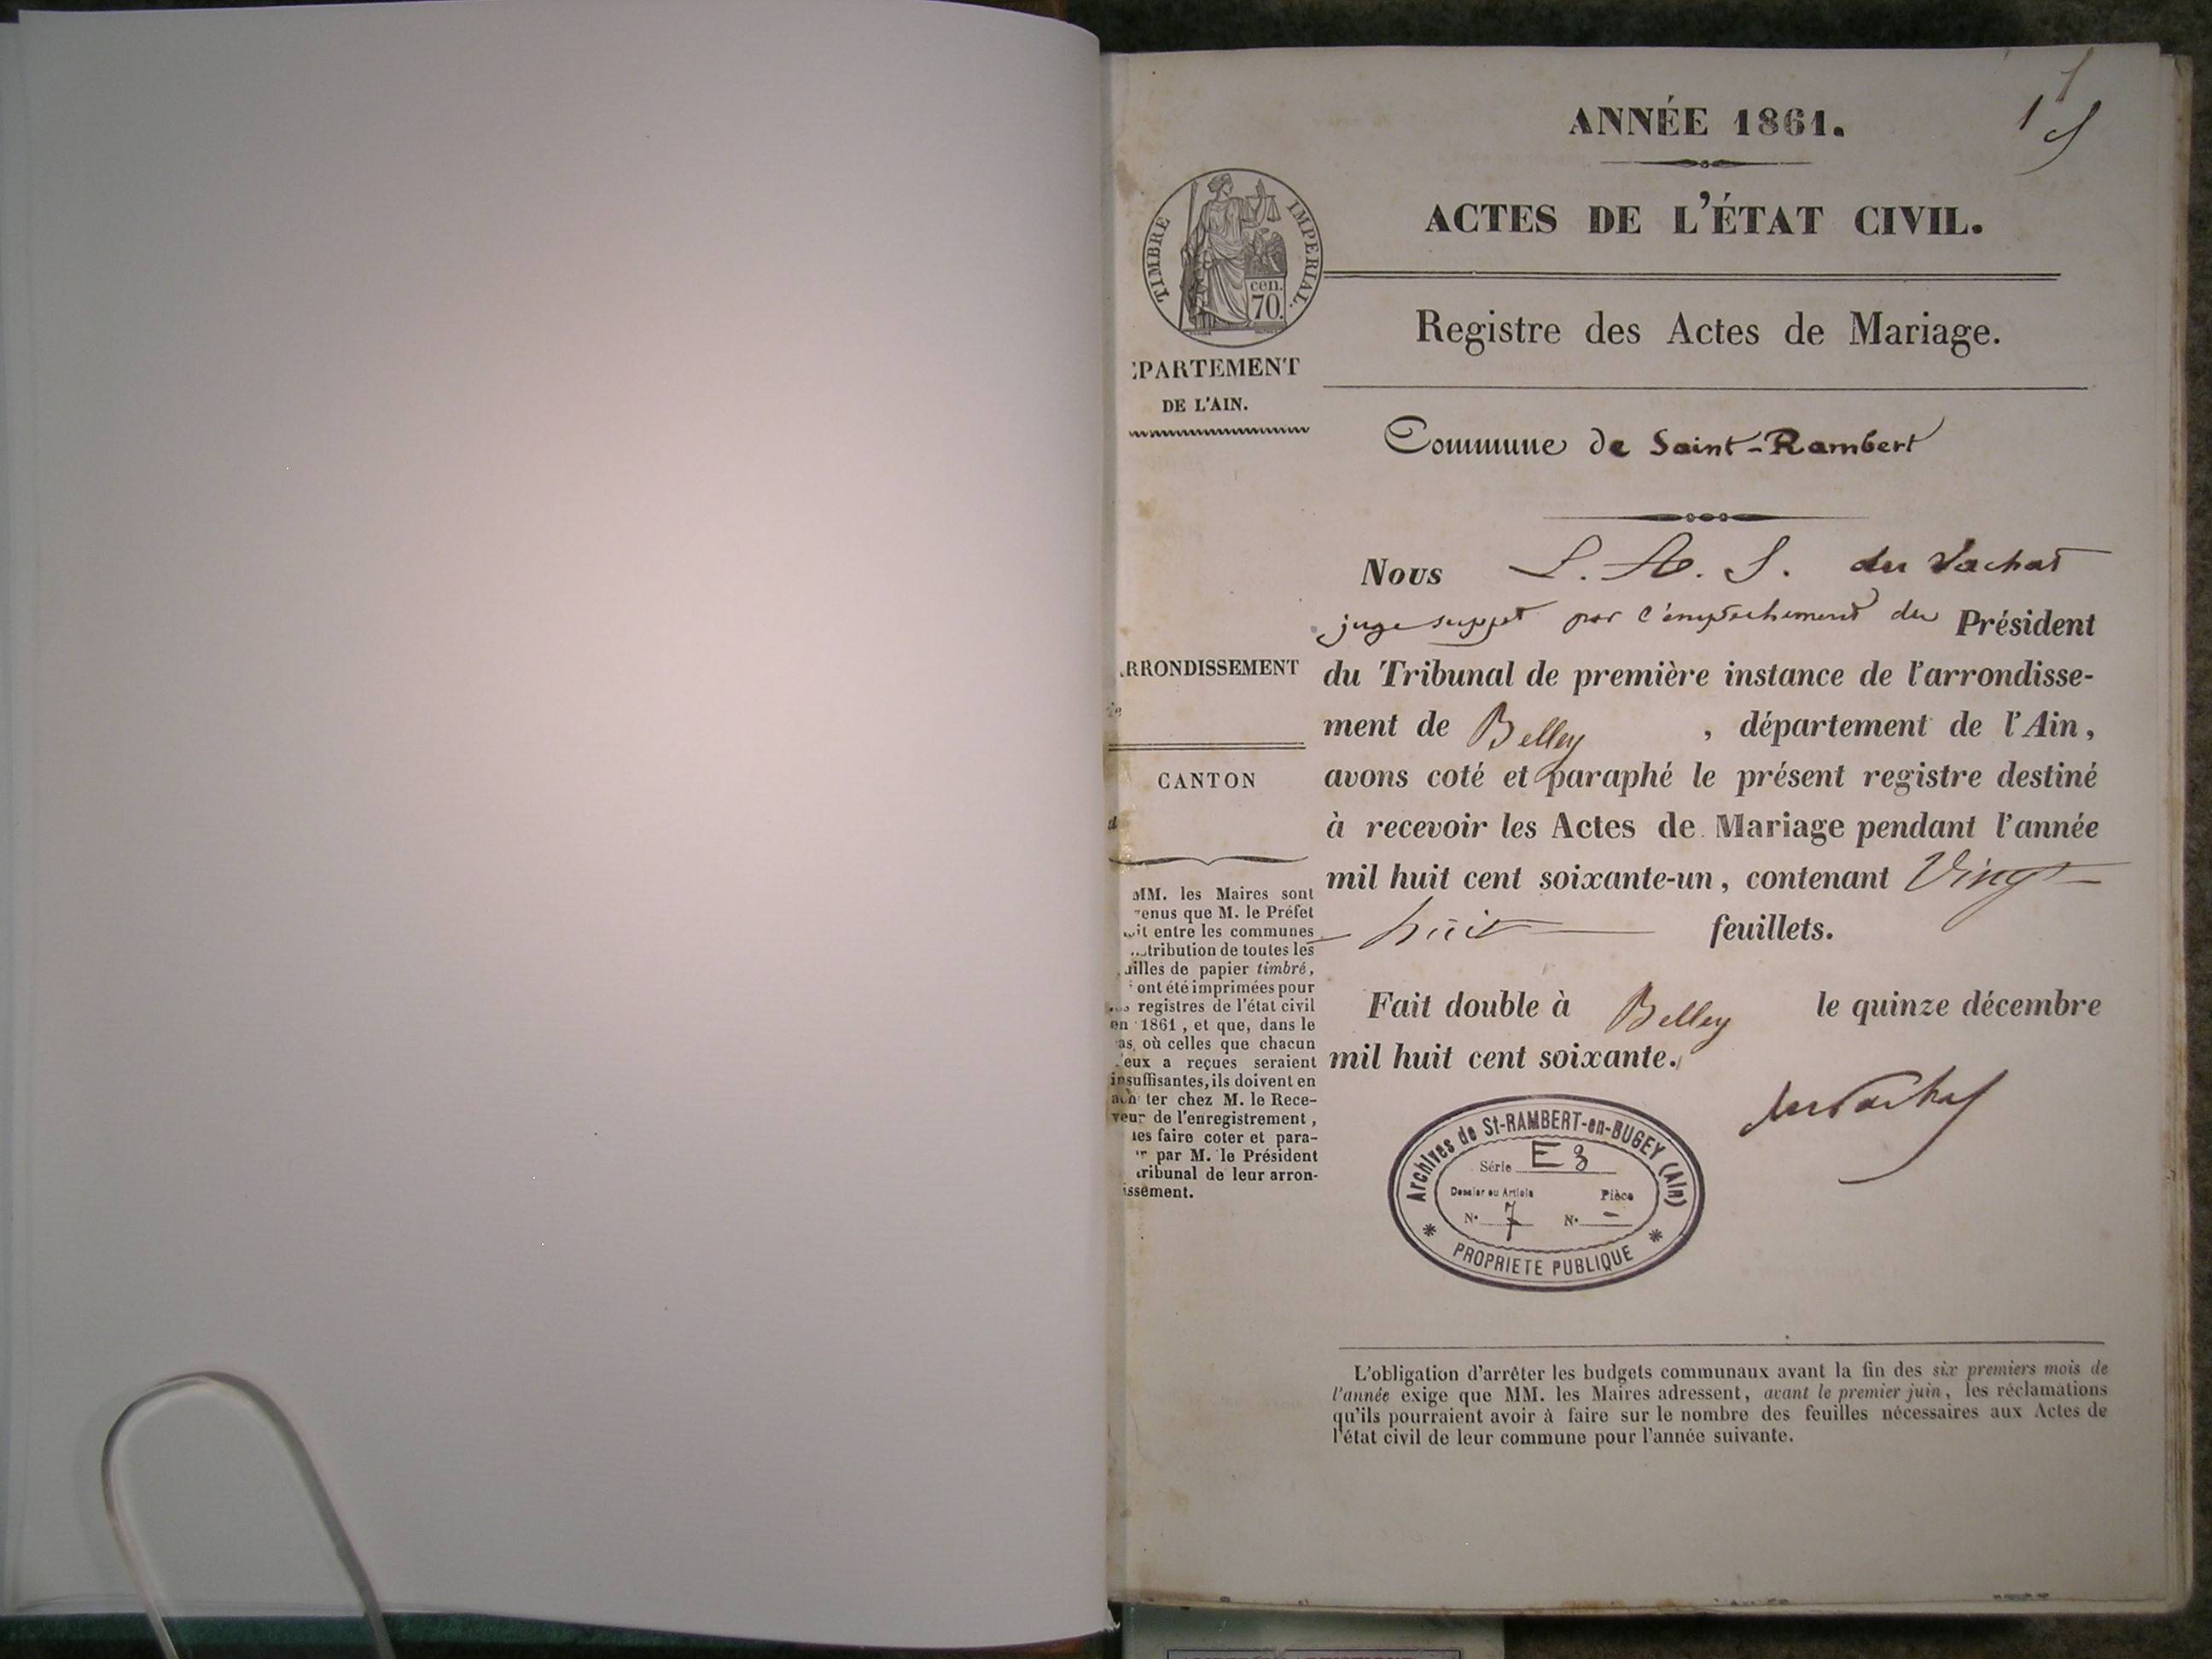 ANNÉE 1861.
ACTES DE L'ÉTAT CIVIL.
TIMBRE IMPERIAL.
cen.
70.
Registre des Actes de Mariage.
PARTEMENT
DE L'AIN.
Commune de Saint-Rambert
Nous L. A. S. du Vachat
juge suppt par l'empêchement du Président
RRONDISSEMENT
du Tribunal de première instance de l'arrondisse-
ment de Belley , département de l'Ain,
CANTON
avons coté et paraphé le présent registre destiné
à recevoir les Actes de Mariage pendant l'année
mil huit cent soixante-un, contenant Vingt
huit feuillets.
Fait double à Belley le quinze décembre
mil huit cent soixante.
duVachat
MM. les Maires sont
enus que M. le Préfet
it entre les communes
tribution de toutes les
illes de papier timbré,
ont été imprimées pour
registres de l'état civil
en 1861, et que, dans le
as, où celles que chacun
eux a reçues seraient
insuffisantes, ils doivent en
ach ter chez M. le Rece-
veur de l'enregistrement,
les faire coter et para-
r par M. le Président
tribunal de leur arron-
issement.
Archives de St-RAMBERT-en-BUGEY (Ain)
Série E 3
Dossier ou Article Pièce
N° 7 N° –
* PROPRIETE PUBLIQUE *
L'obligation d'arrêter les budgets communaux avant la fin des six premiers mois de
l'année exige que MM. les Maires adressent, avant le premier juin, les réclamations
qu'ils pourraient avoir à faire sur le nombre des feuilles nécessaires aux Actes de
l'état civil de leur commune pour l'année suivante.